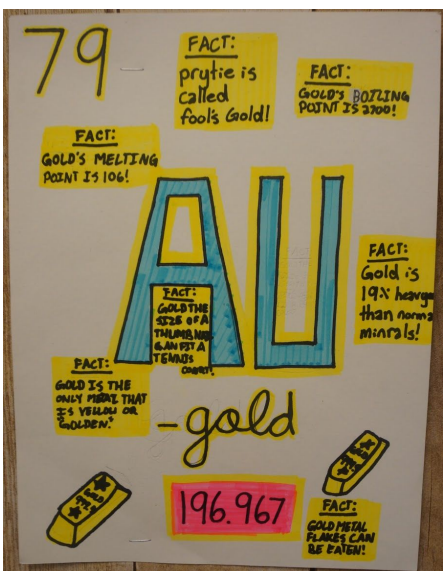 79
FACT:
prytie is
called
fool's Gold!
FACT:
GOLD'S BOILING
POINT IS 2700!
FACT:
GOLD'S MELTING
POINT IS 106!
AU
FACT:
Gold is
19% heavy
than norma
minrals!
FACT:
GOLD THE
SIZE OF A
THUMB NAIL
CAN FIT A
TENNIS
COURT!
FACT:
GOLD IS THE
ONLY METAL THAT
IS YELLOW OR
"GOLDEN."
-gold
196.967
FACT:
GOLD METAL
FLAKES CAN
BE EATEN!